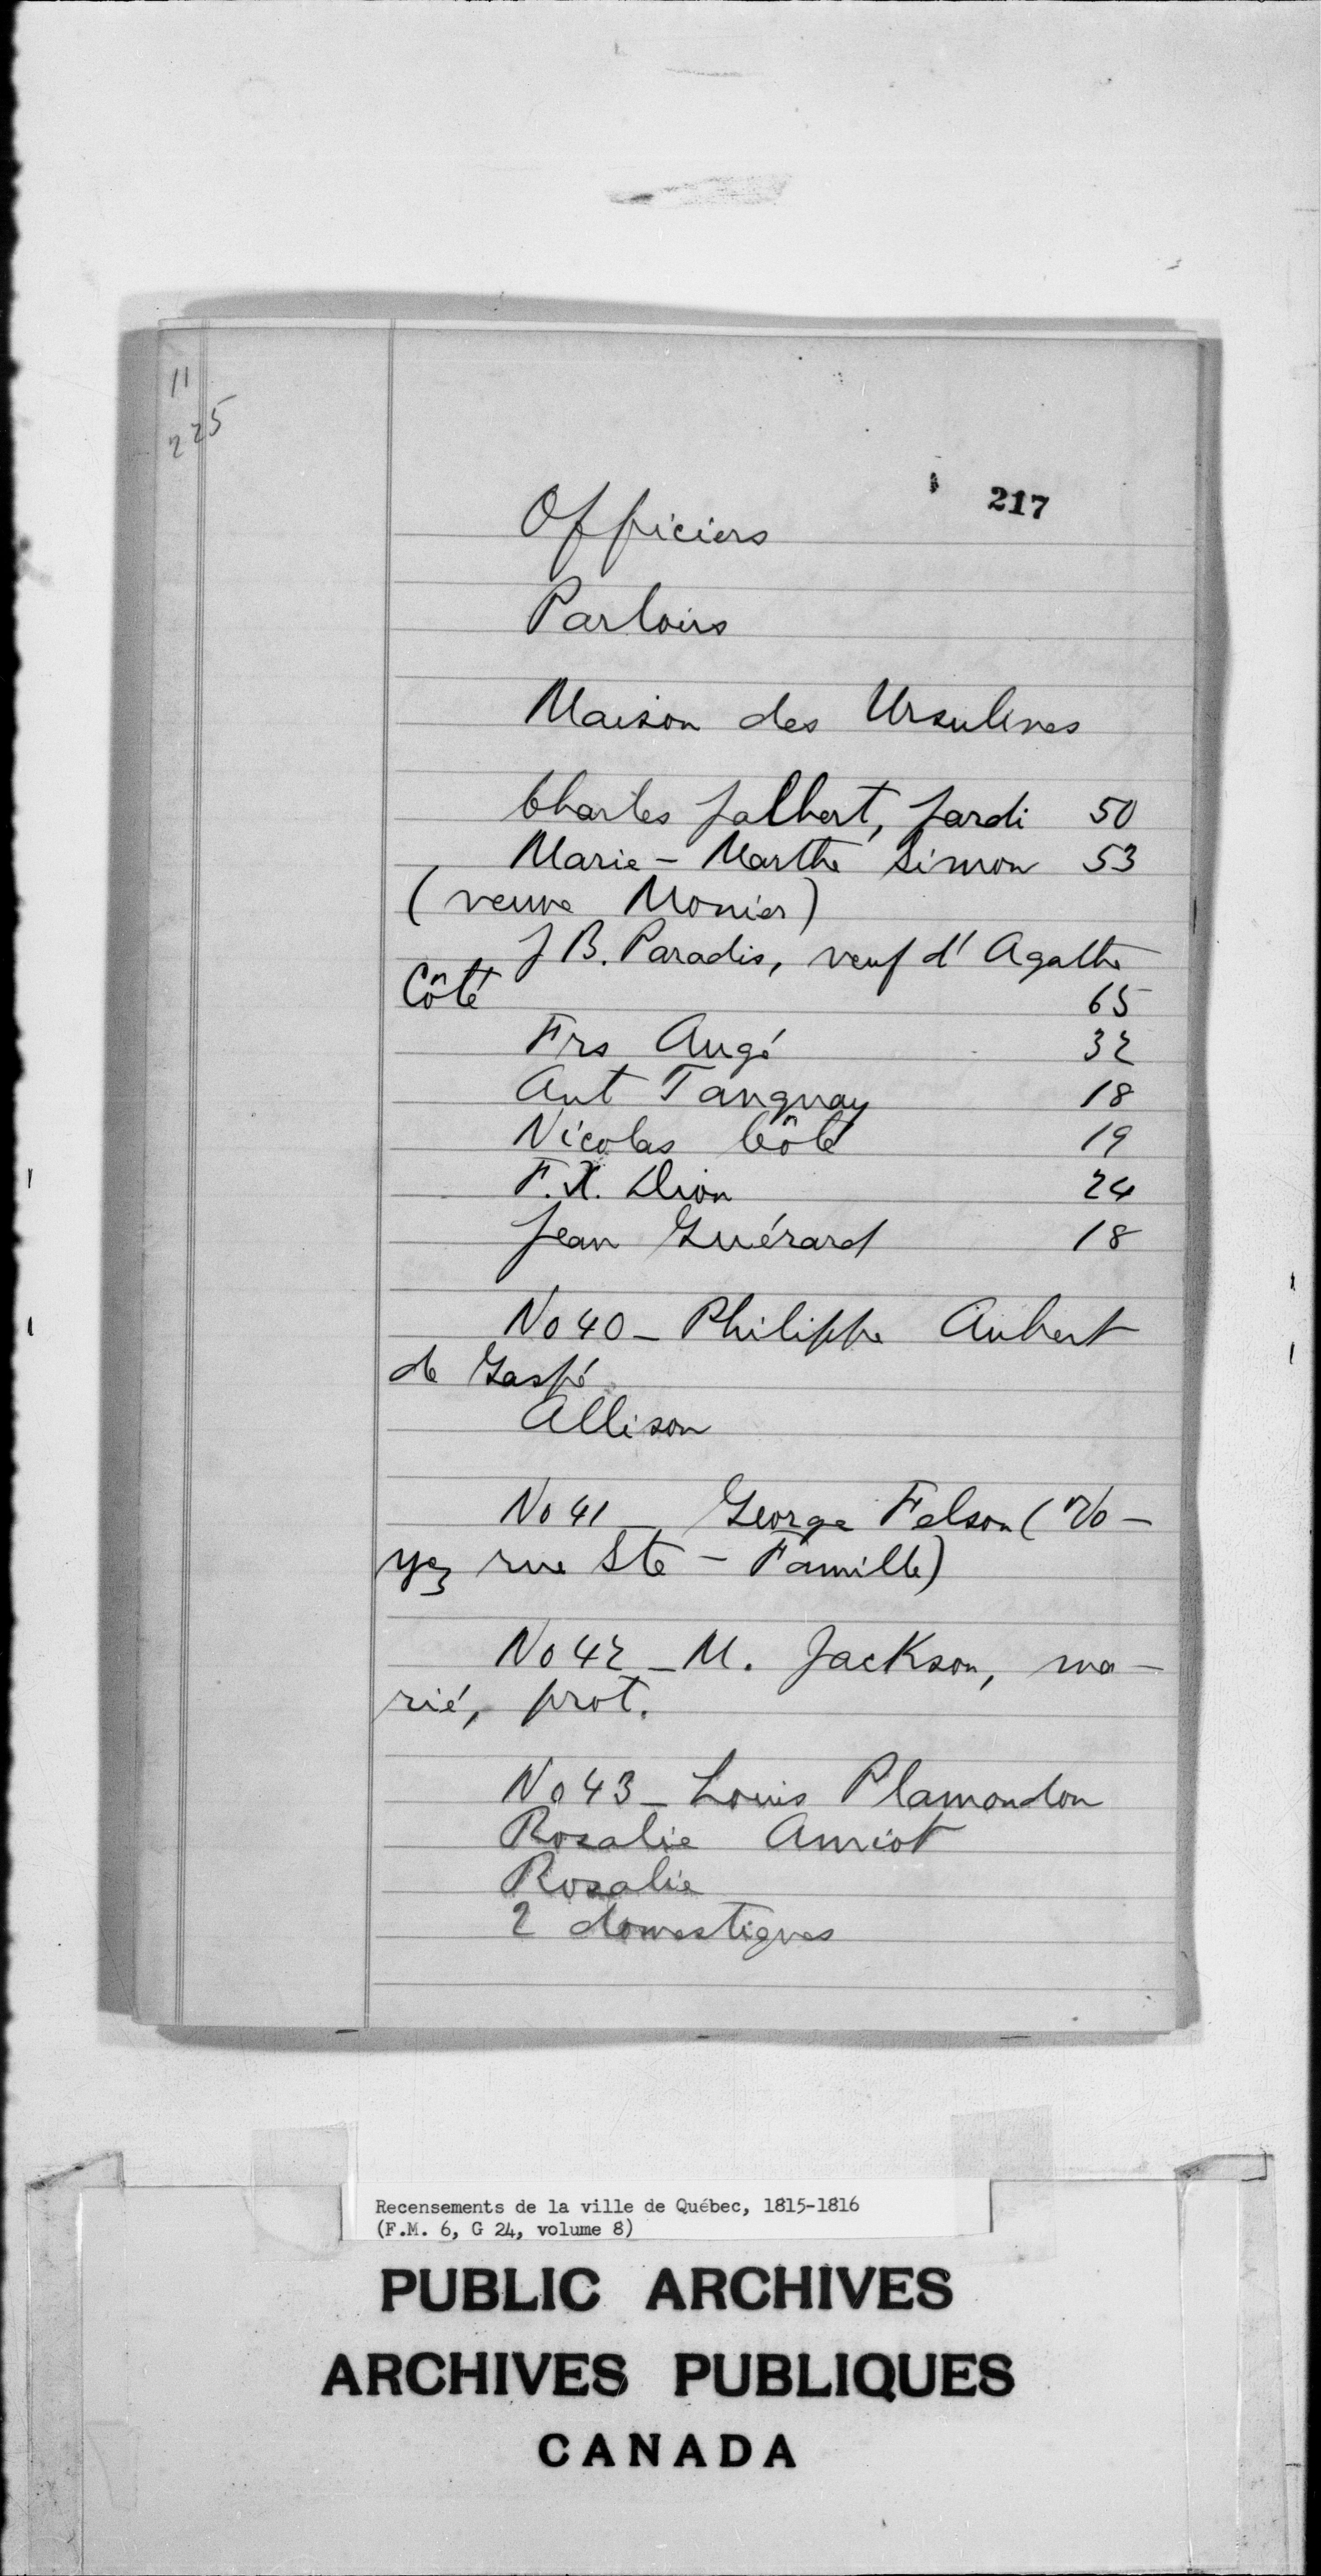 11
225
217
Officiers
Parloirs
Maison des Ursulines
Charles Jalbert, Jardi 50
Marie - Marthe Simon 53
(veuve Monier)
J B. Paradis, veuf d'Agathe
Côté 65
Frs Augé 32
Ant Tanguay 18
Nicolas Côté 19
F.X. Dion 24
Jean Guérard 18
No 40 - Philippe Aubert
de Gaspé
Allison
No 41 - George Felson (Vo-
yez rue Ste - Famille)
No 42 - M. Jackson, ma-
rié, prot.
No 43 - Louis Plamondon
Rosalie Amiot
Rosalie
2 domestiques
Recensements de la ville de Québec, 1815-1816
(F.M. 6, G 24, volume 8)
PUBLIC ARCHIVES
ARCHIVES PUBLIQUES
CANADA